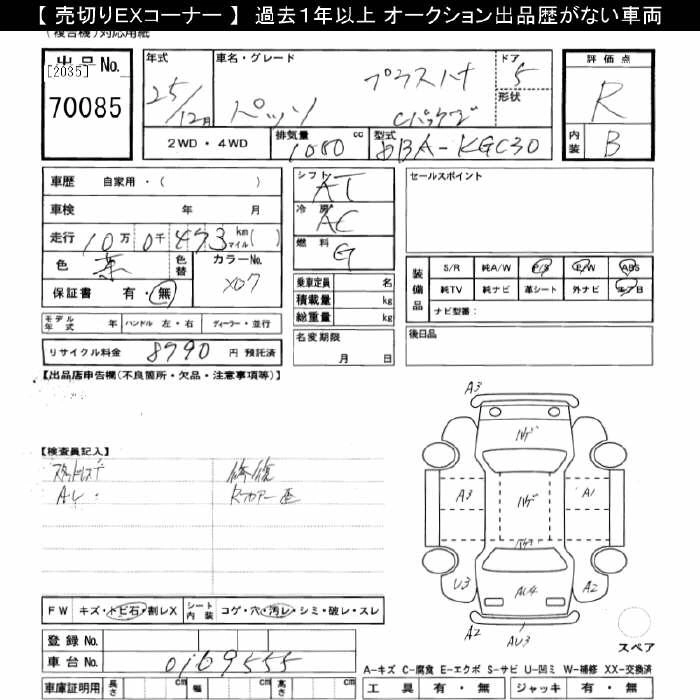 【 売切りEXコーナー 】 過去１年以上 オークション出品歴がない車両
(複合機)対応用紙
出品No.
[2035]
70085
年式 25/12月
車名・グレード
パッソ
プラスハナ
Cパッケージ
ドア 5
形状
評価点
R
内装 B
2WD・4WD
排気量 1000 cc
型式 DBA-KGC30
車歴 自家用・( )
車検 年 月
走行 10万0千473 km マイル( )
色 茶
色替
カラーNo. X07
保証書 有・無
シフト AT
冷房 AC
燃料 G
乗車定員 名
積載量 kg
総重量 kg
セールスポイント
装備品
S/R 純A/W P/S P/W ABS
純TV 純ナビ 革シート 外ナビ エアB
ナビ型番:
モデル年式 年 ハンドル 左・右 ディーラー・並行
リサイクル料金 8990 円 預託済
名変期限
月 日
後日品
【出品店申告欄(不良箇所・欠品・注意事項等)】
【検査員記入】
スタッドレス
修復
Rフロアー
FW キズ・トビ石・割レX シート内装 コゲ・穴・汚レ・シミ・破レ・スレ
登録 No.
車台 No. 0169555
車庫証明用 長さ cm 幅 cm 高さ cm
A3
ハゲ
A3
ハゲ
A1
ハゲ
U3
AU4
A2
A2
AU3
スペア
A-キズ C-腐食 E-エクボ S-サビ U-凹ミ W-補修 XX-交換済
工具 有・無 ジャッキ 有・無